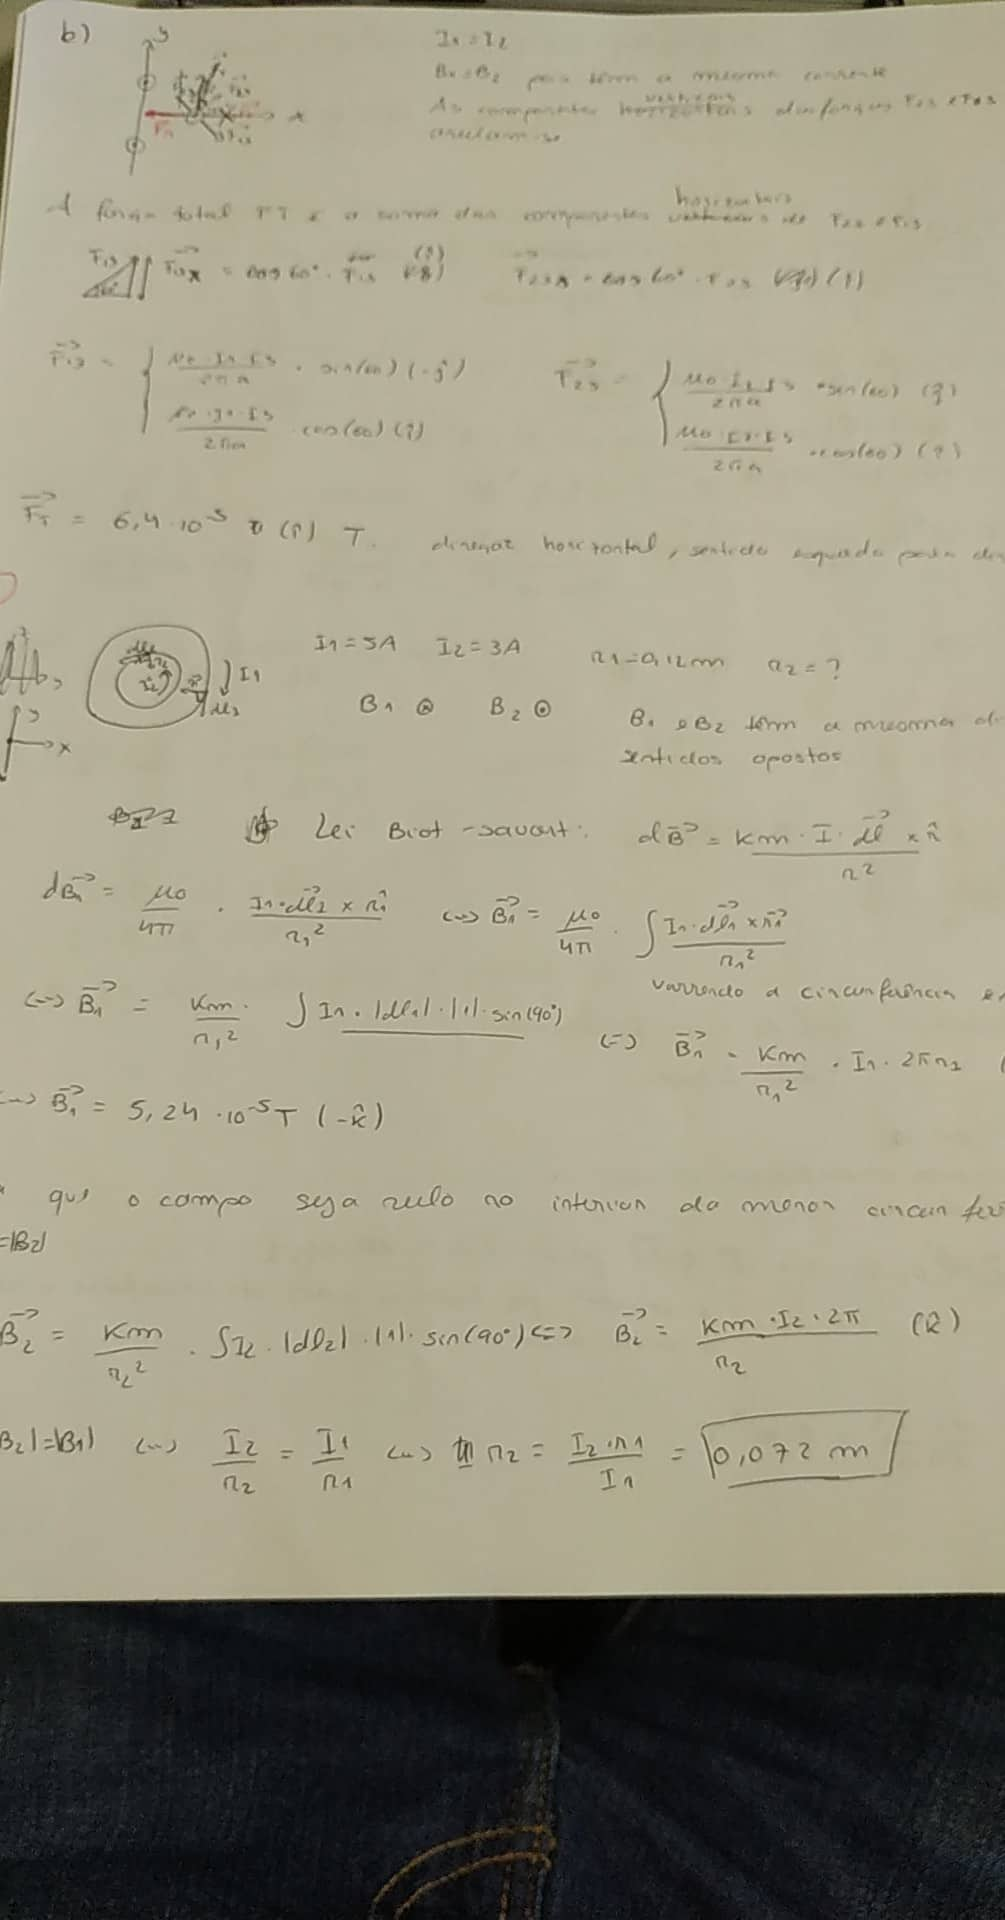 b)
y
x
I1 = I2
B1 = B2 pois têm a mesma corrente
As componentes verticais das forças F23 e F13
anulam-se
A força total FT é a soma das componentes horizontais de F23 e F13
F13 F13x = cos 60° · F13 (î) F23x = cos 60° · F23 (î)
F13 = { μ0·I1·I3 / 2πa · sin(60) (-ĵ) F23 = { μ0·I2·I3 / 2πa · sen(60) (ĵ)
μ0·I1·I3 / 2πa · cos(60) (î) μ0·I2·I3 / 2πa · cos(60) (î)
FT = 6,4·10⁻⁵ (î) T. direção horizontal, sentido esquerda para
I1 = 5A I2 = 3A r1 = 0,12m r2 = ?
I2 I1
y
x
B1 ⊗ B2 ⊙ B1 e B2 têm a mesma
sentidos opostos
Lei Biot-savart: dB = Km · I · dl × r̂ / r²
dB1 = μ0/4π · I1·dl1 × r̂1 / r1² <=> B1 = μ0/4π · ∫ I1·dl1 × r̂1 / r1²
varrendo a circunferência
<=> B1 = Km/r1² · ∫ I1 · |dl1| · |1| · sin(90°) <=> B1 = Km/r1² · I1 · 2πr1
<=> B1 = 5,24 · 10⁻⁵ T (-k̂)
que o campo seja nulo no interior da menor
=|B2|
B2 = Km/r2² · ∫ I2 · |dl2| · |1| · sin(90°) <=> B2 = Km · I2 · 2π / r2 (k̂)
B2|=|B1| <=> I2/r2 = I1/r1 <=> r2 = I2·r1 / I1 = 0,072 m